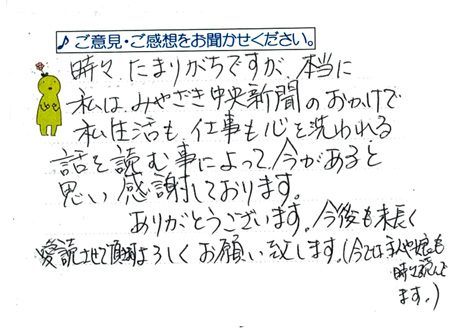 ♪ご意見・ご感想をお聞かせください。
時々、たまりがちですが、本当に
私は、みやざき中央新聞のおかげで
私生活も、仕事も心を洗われる
話を読む事によって、今があると
思い、感謝しております。
ありがとうございます。今後も末長く
愛読させて頂きますよろしくお願い致します。(今では主人や娘も
時々読んで
ます。)